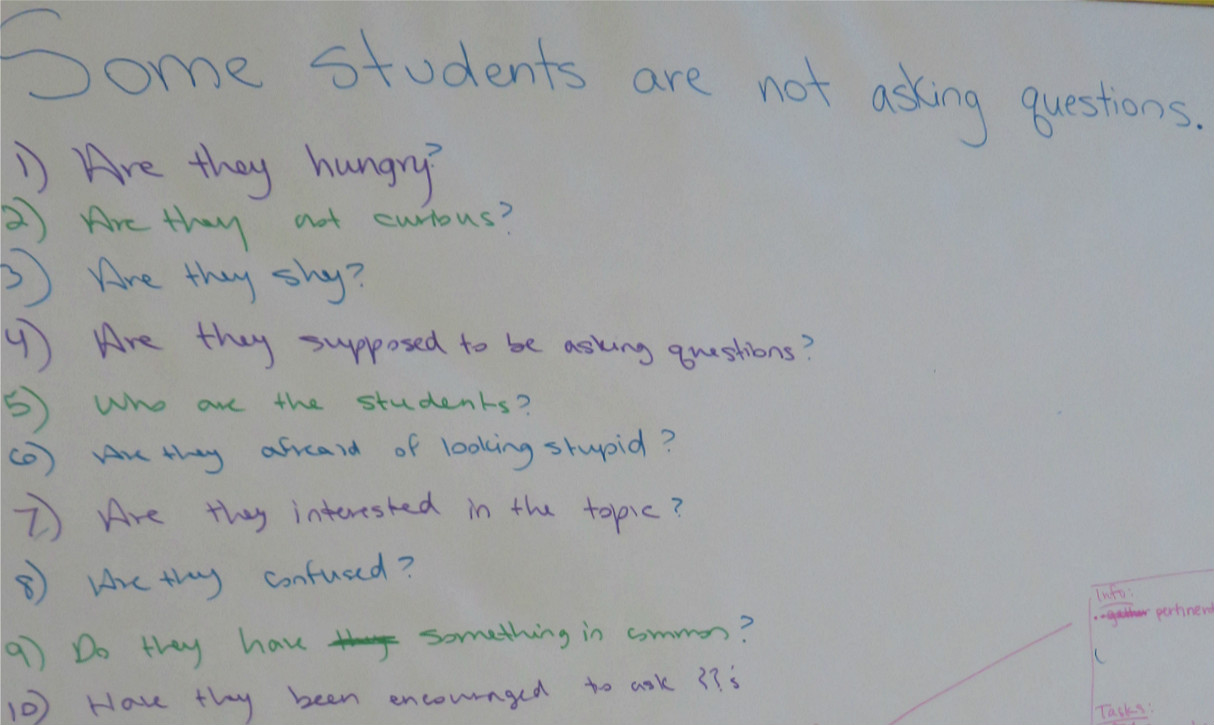 Some students are not asking questions.
1) Are they hungry?
2) Are they not curious?
3) Are they shy?
4) Are they supposed to be asking questions?
5) Who are the students?
6) Are they afraid of looking stupid?
7) Are they interested in the topic?
8) Are they confused?
9) Do they have they something in common?
10) Have they been encouraged to ask ??s
Info:
gather pertinent
Tasks: